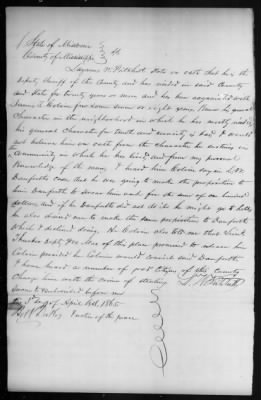 State of Missouri
County of Mississippi } ss
deputy Sheriff of the County and has resided in said County
and State for twenty years or more and has been acquainted with
James T. Colvin for some seven or eight years. Knows his general
Character in the neighborhood in which he has mostly resided,
his general Character for truth and veracity is bad & would
not believe him on oath from the character he sustains in
the Community in which he has lived and from my personal
Knowledge of the man. I heard him Colvin say in
Danforth case that he was going to make the proposition to
him Danforth to swear him out for the sum of one hundred
dollars and if he Danforth did not do it he might go to hell,
he also desired me to make the same proposition to Danforth
which I declined doing. He Colvin also told me that
of this place promised to release him
Colvin provided he Colvin would convict said Danforth
I have heard a number of good Citizens of this County
Charge him with the crime of stealing
Sworn to & subscribed before me
this day of April A.D. 1865
Justice of the peace